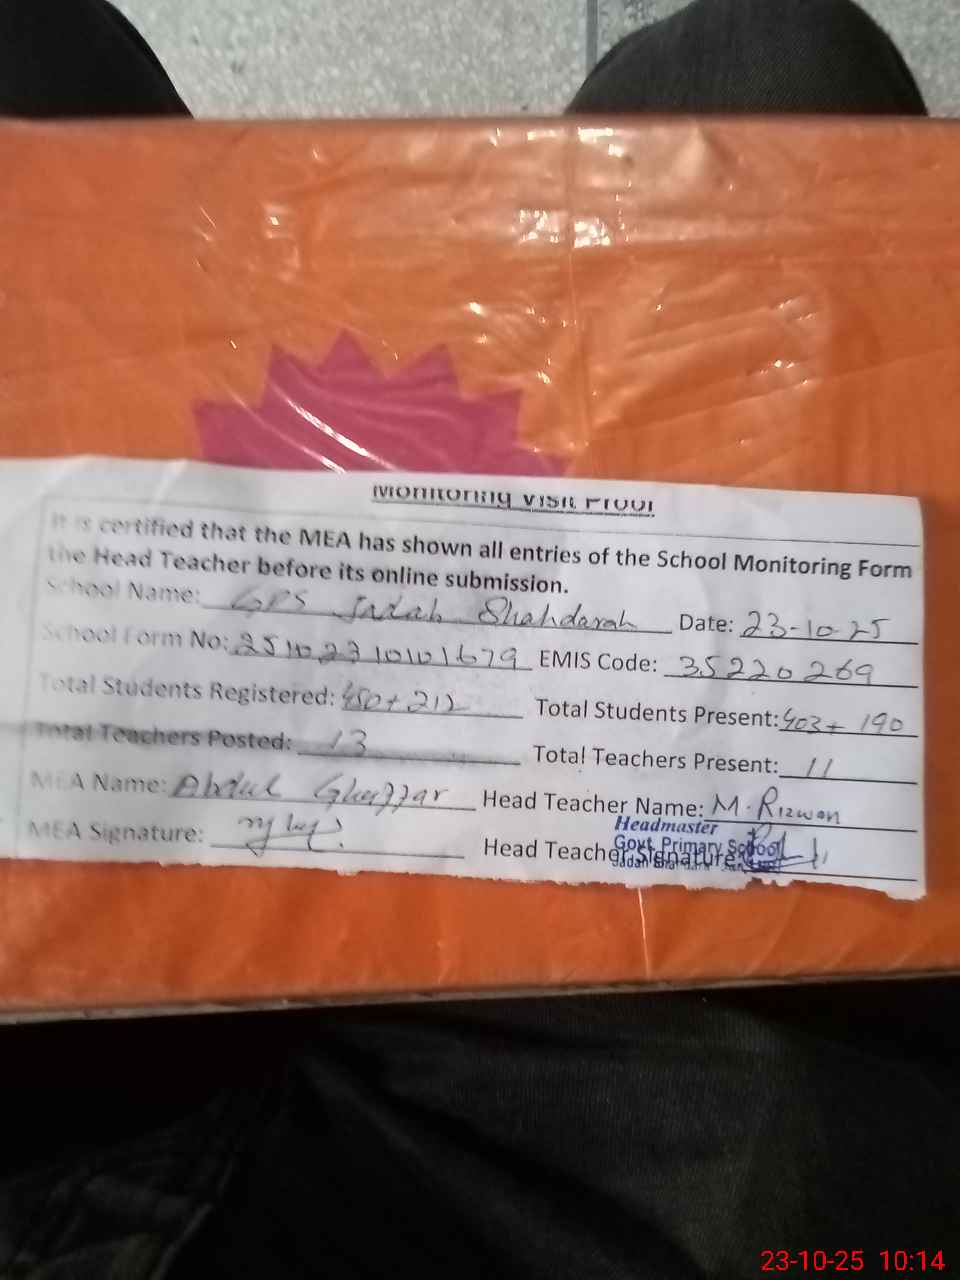 Monitoring Visit Proof
It is certified that the MEA has shown all entries of the School Monitoring Form
the Head Teacher before its online submission.
School Name: GPS Jadah Shahdarah Date: 23-10-25
School Form No: 25102310101679 EMIS Code: 35220269
Total Students Registered: 450+212 Total Students Present: 403+190
Total Teachers Posted: 13 Total Teachers Present: 11
MEA Name: Abdul Ghaffar Head Teacher Name: M. Rizwan
MEA Signature: Head Teacher Signature:
Headmaster
Govt. Primary School
23-10-25 10:14